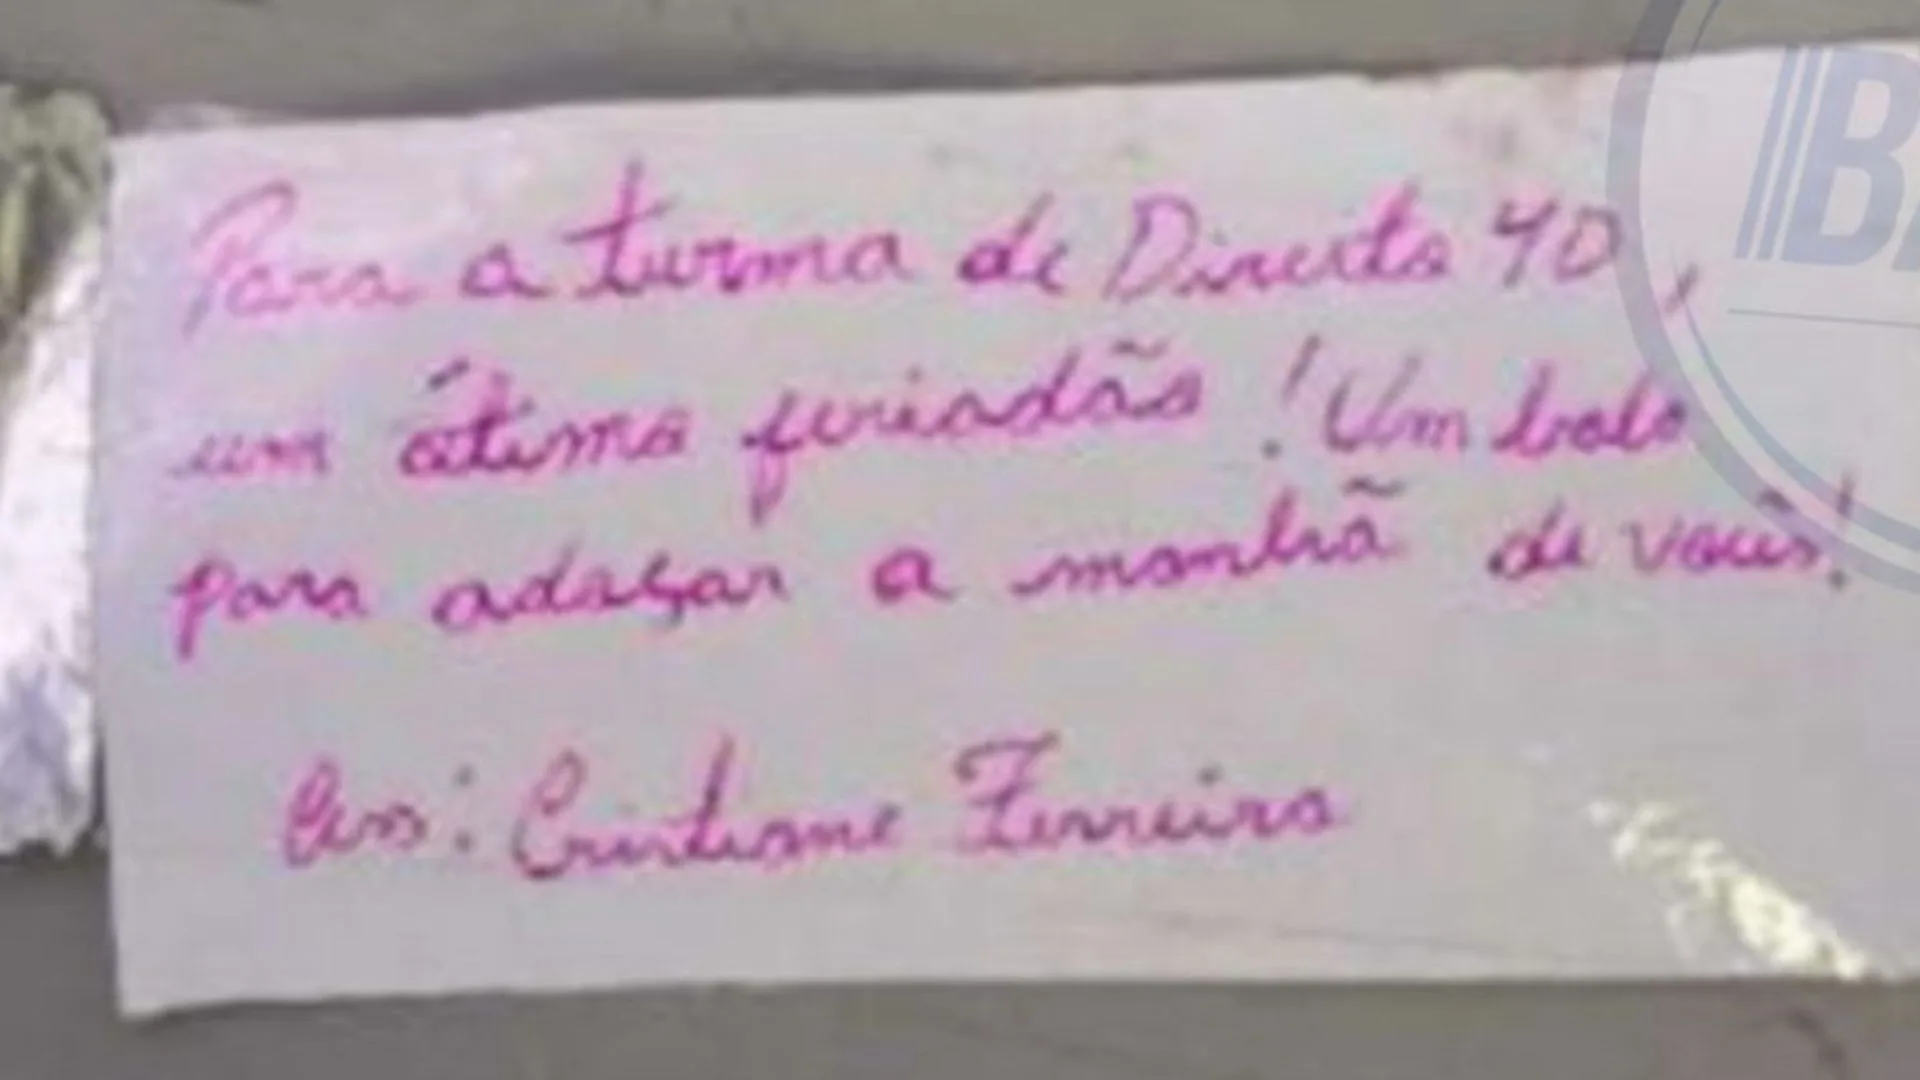 Para a turma de Direito 40,
um ótimo feriadão! Um bolo
para adoçar a manhã de vocês!
Ass: Cristiane Ferreira